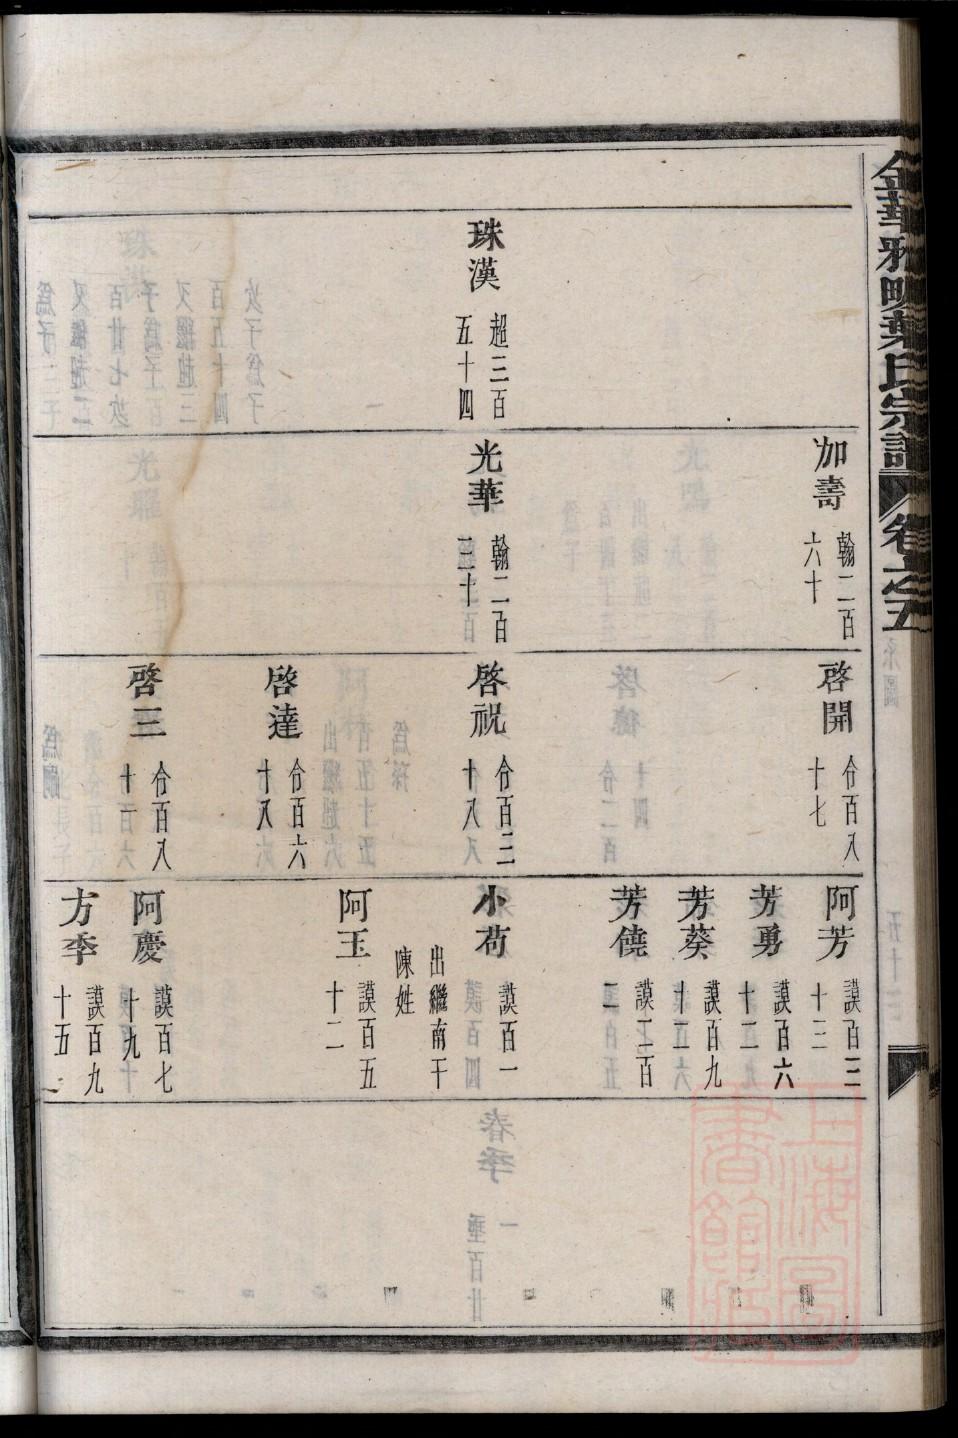 金華雅畈葉氏宗譜
卷之五
珠漢
超三百
五十四
加壽
翰二百
六十
光華
翰二百
三十
啓開
佾百八
十七
啓祝
佾百三
十八
啓達
佾百六
十八
啓三
佾百八
十一
阿芳
謨百三
十三
芳勇
謨百六
十二
芳葵
謨百九
十二
芳饒
謨二百
二
小苟
謨百一
出繼南干
陳姓
阿玉
謨百五
十二
阿慶
謨百七
十九
方季
謨百九
十五
上海圖
書館藏